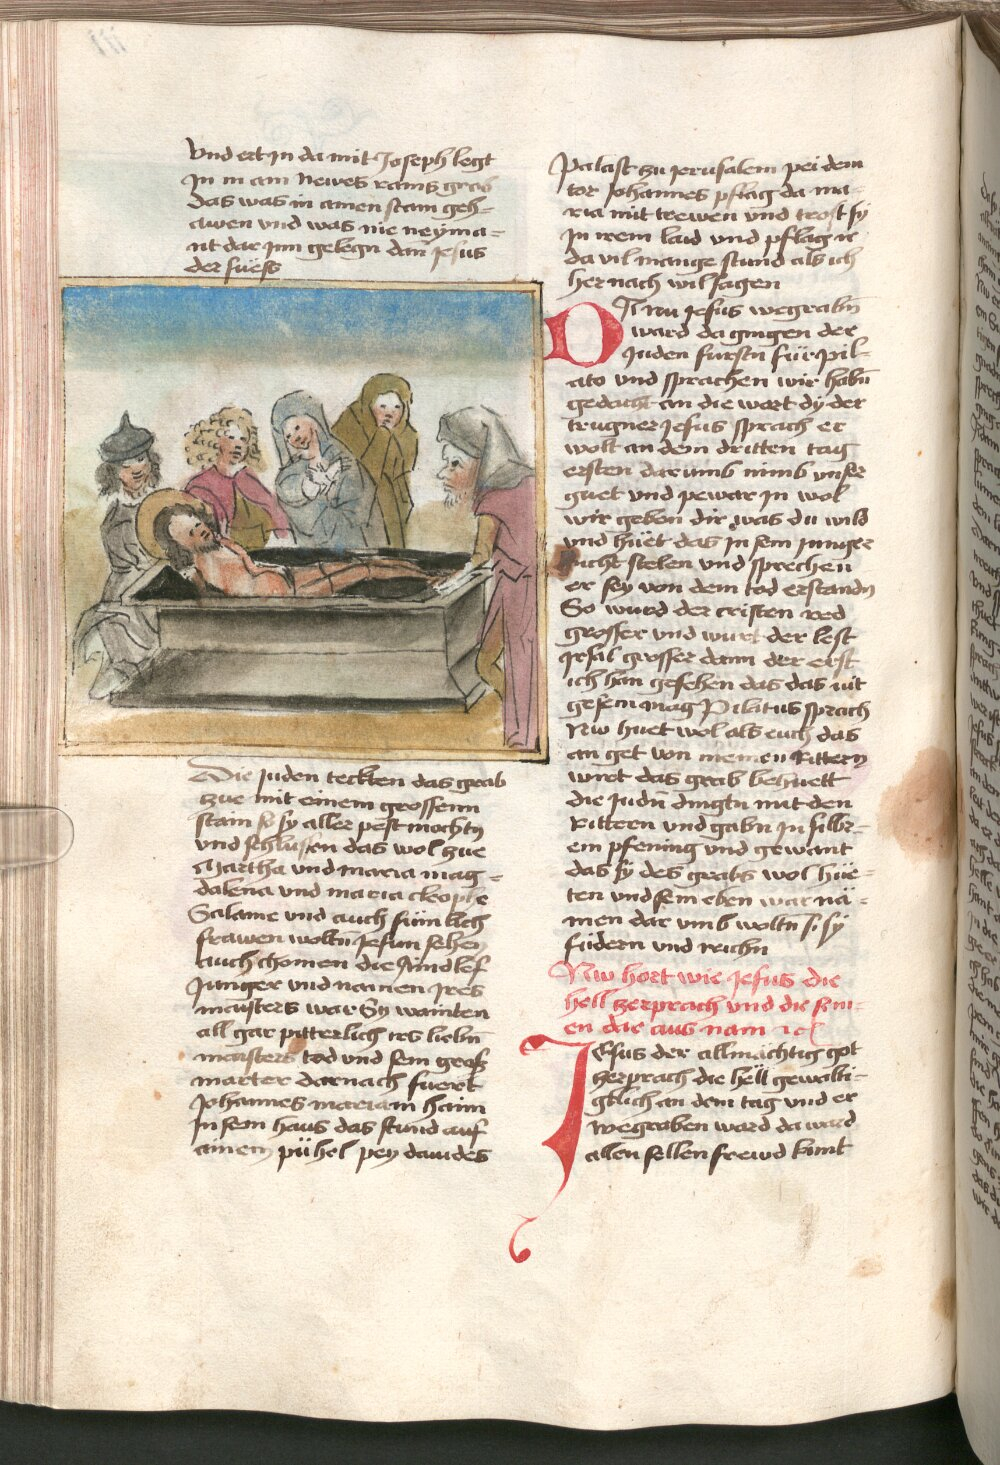 Vnd ert in da mit Joseph legt
In in ain Newes rains grab
das was in ainen stain geh-
awen vnd was nie neyma-
nt dar Inn gelegn dan Jesus
der suess
Die Juden teckten das grab
zue mit einem grossenn
stain so sy aller pest mochtn
vnd schlussen das wol zue
Martha vnd maria mag-
dalena vnd maria cleophe
Salame vnd auch
frawen woltn Jesum sehen
auch chomen die Aindlef
Junger vnd namen Ires
maisters war Sy wainten
all gar pitterlich irs liebn
maisters tod vnd sein gross
marter darnach fuert
Johannes mariam haim
In sein haus das stund auf
ainem pühel pey dauides
Palast zu Jerusalem pei dem
tor Johannes pflag da ma-
ria mit trewen vnd trost sy
In irem laid vnd pflag ir
da vil mange stund als ich
her nach wil sagen
DO nu Jesus wegrabn
ward da gingen der
Juden furstn für pil-
ato vnd sprachen wir habn
gedacht an die wort dy der
trugner Jesus sprach er
wolt an dem dritten tag
ersten dar umb nimb vnser
guet vnd pewar In wol
wir geben dir was du wild
vnd huet das In sein Junger
nicht stelen vnd sprechen
er sey von dem tod erstandn
So wurd der cristen red
grosser vnd wurt der lest
Irsal grosser dann der erst
ich han gesehen das das nit
gesein mag Pilatus sprach
Nw huet wol als euch das
an get von meinen Rittern
wirt das grab behuett
die Judn dingtn mit den
Rittern vnd gabn In silbr-
ein pfening vnd gewant
das sy des grabs wol hüe-
ten vnd sein eben war nä-
men dar vmb woltn si sy
südern vnd richn
Nw hort wie Jesus die
hell zerprach vnd die sein-
en dar aus nam ic
JEsus der allmächtig got
zerprach die hell gewalti-
gklich an dem tag vnd er
wegraben ward da ward
allen sellen frewd kunt